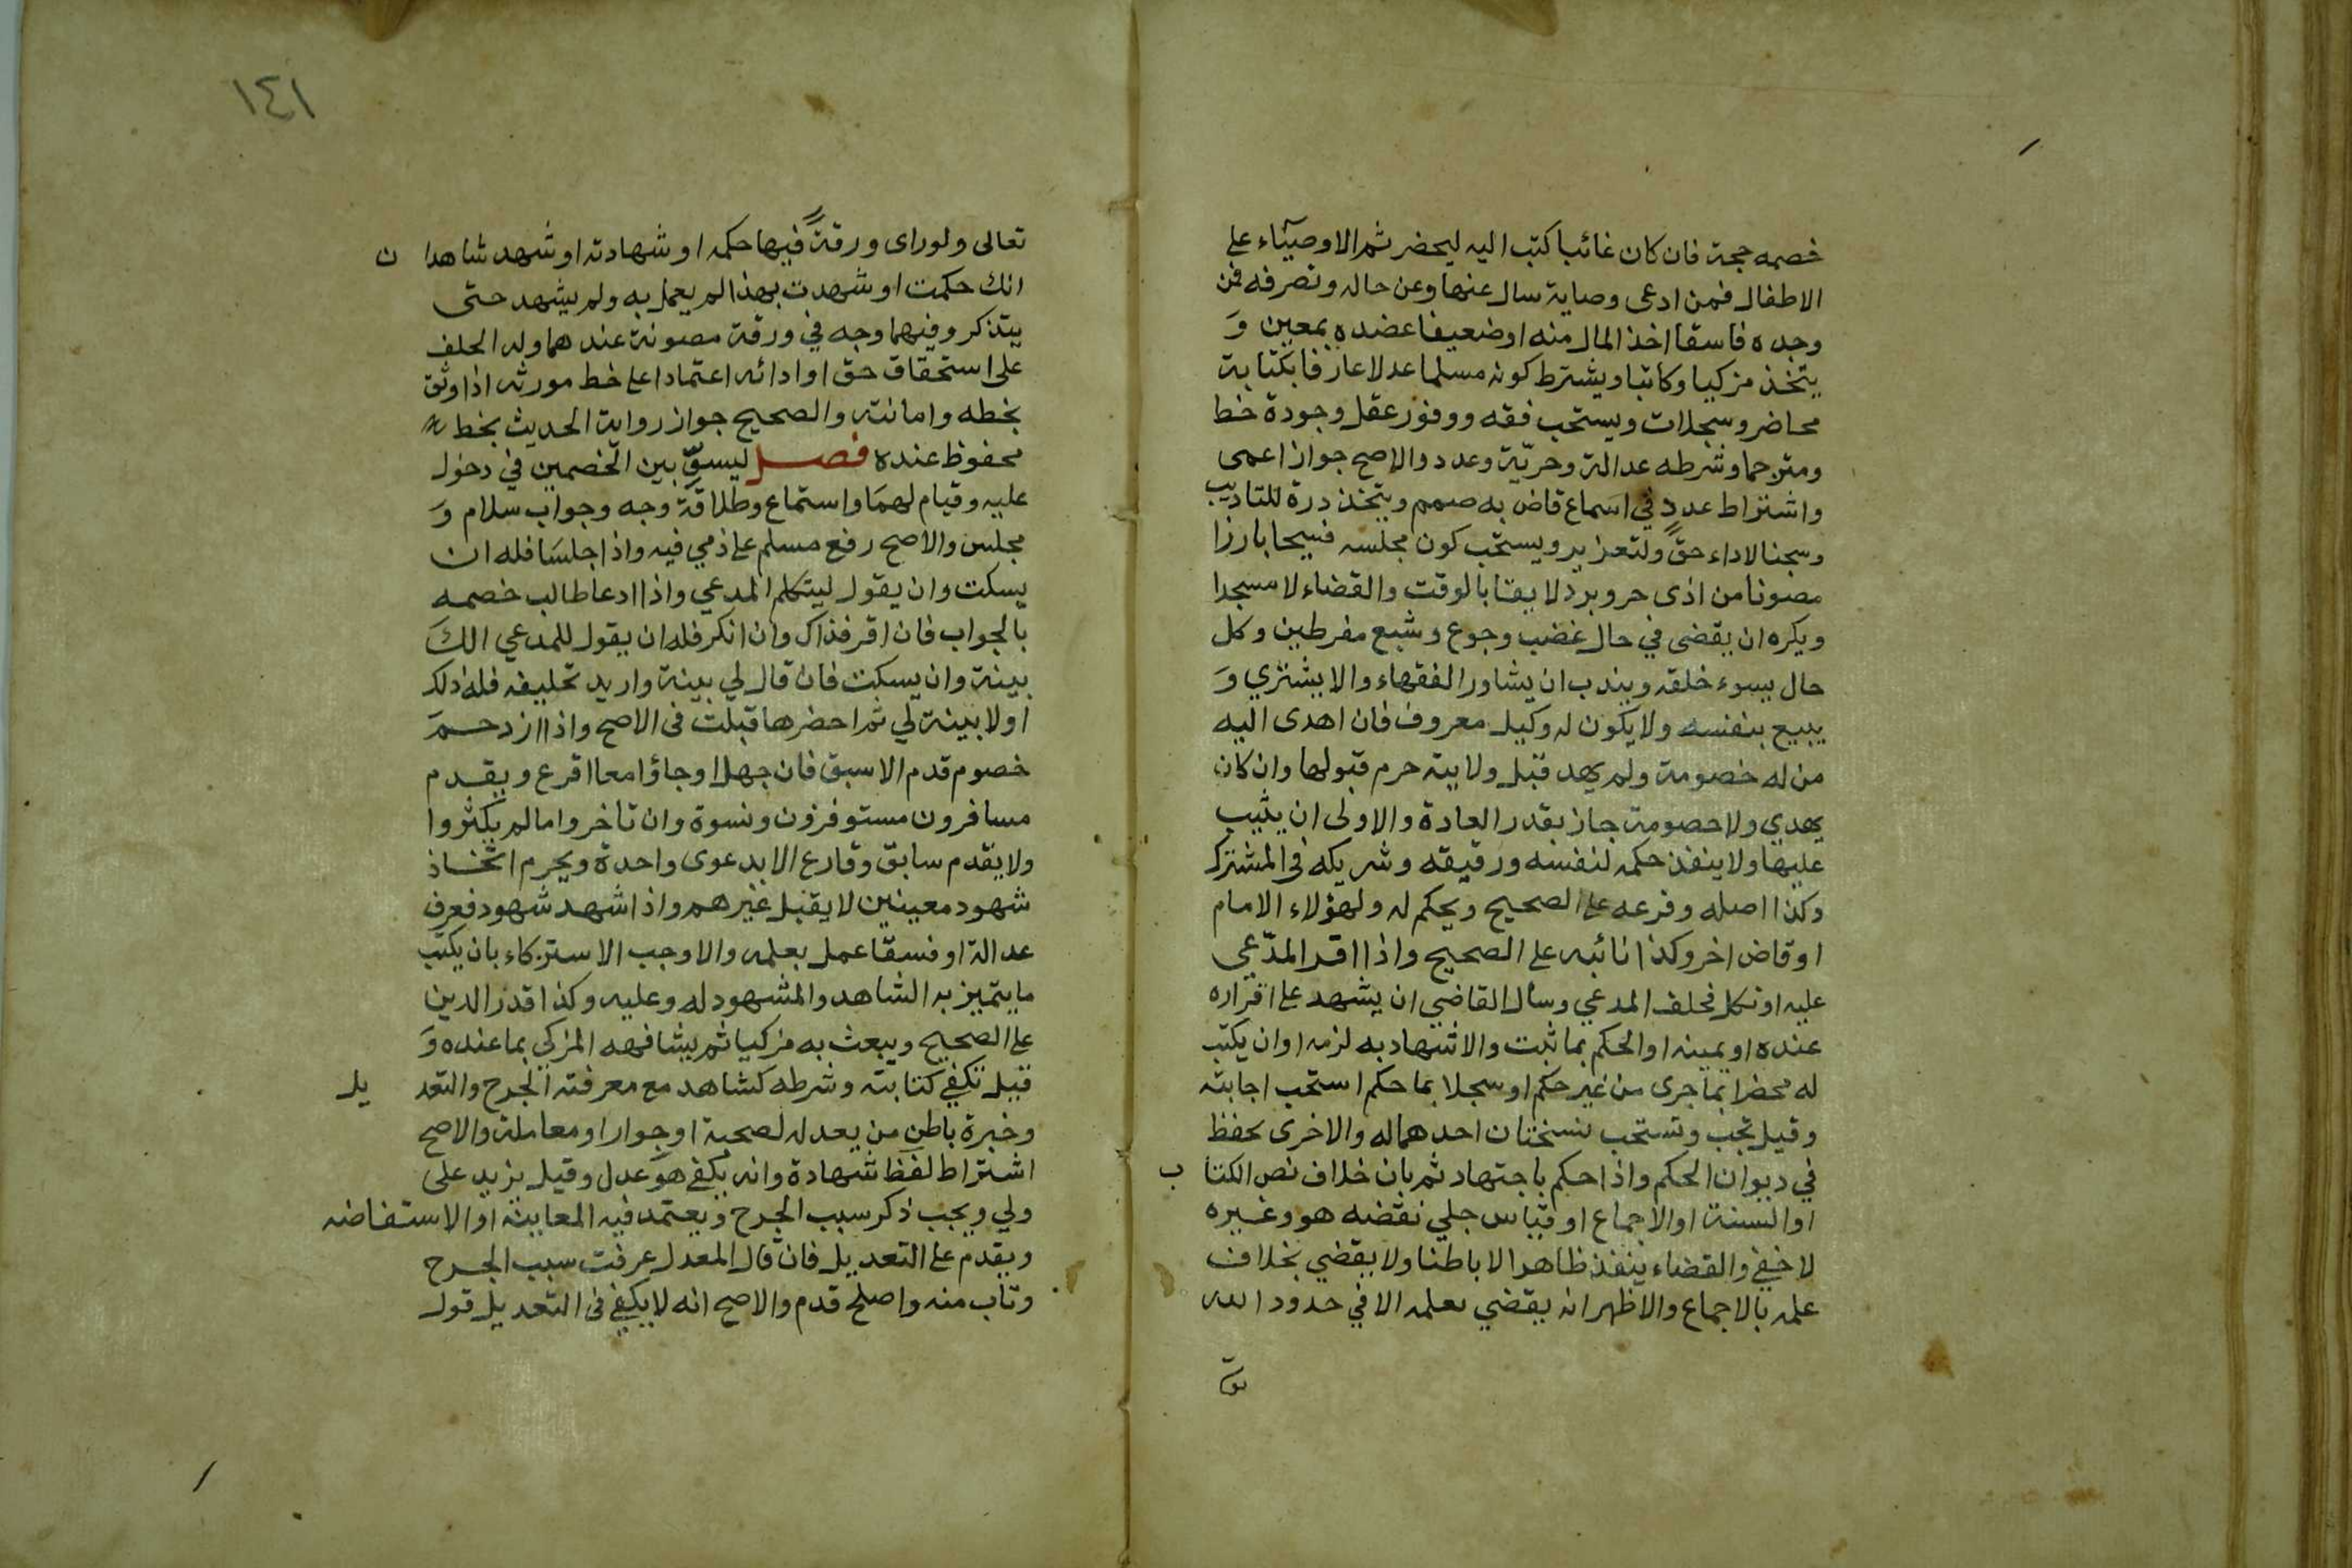 خصمه حجة فان كان غائبا كتب اليه ليحضر ثم الاوصيآء على
الاطفال فمن ادعى وصاية سال عنها وعن حاله وتصرفه فمن
وجده فاسقا اخذ المال منه او ضعيفا عضده بمعين وَ
يتخذ مزكيا وكاتبا ويشترط كونه مسلما عدلا عارفا بكتابة
محاضر وسجلات ويستحب فقه ووفور عقل وجودة خط
ومترجما وشرطه عدالة وحريّة وعدد والاصح جواز اعمى
واشتراط عددٍ في اسماع قاض به صمم ويتخذ درة للتاديب
وسجنا لاداء حقٍّ ولتعزير ويستحب كون مجلسه فسيحا بارزا
مصونا من اذى حر وبرد لايقا بالوقت والقضاء لا مسجدا
ويكره ان يقضى في حال غضب وجوع وشبع مفرطين وكل
حال يسوء خلقه ويندب ان يشاور الفقهاء والا يشتري وَ
يبيع بنفسه ولا يكون له وكيل معروف فان اهدى اليه
من له خصومة ولم يهد قبل ولايته حرم قبولها وان كان
يهدي ولا خصومة جاز بقدر العادة والاولى ان يثيب
عليها ولا ينفذ حكمه لنفسه ورقيقه وشريكه فى المشترك
وكذا اصله وفرعه على الصحيح ويحكم له ولهؤلاء الامام
او قاض اخر وكذا نائبه على الصحيح واذا اقر المدّعي
عليه او نكل فحلف المدعي وسال القاضي ان يشهد على اقراره
عنده او يمينه او الحكم بما ثبت والاشهاد به لزمه او ان يكتب
له محضرا بما جرى من غير حكم او سجلا بما حكم استحب اجابته
وقيل تجب وتستحب نسختان احدهما له والاخرى تحفظ
في ديوان الحكم واذا حكم باجتهاد ثم بان خلاف نص الكتا ب
او السنة او الاجماع او قياس جلي نقضه هو وغيره
لا خفي والقضاء ينفذ ظاهرا لا باطنا ولا يقضي بخلاف
علمه بالاجماع والاظهر انه يقضي بعلمه الا في حدود الله
١٤١
تعالى ولو راى ورقةً فيها حكمه او شهادته او شهد شاهدا ن
انك حكمت او شهدت بهذا لم يعمل به ولم يشهد حتى
يتذكر وفيهما وجه في ورقة مصونة عندهما وله الحلف
على استحقاق حق او ادائه اعتمادا على خط مورثه اذا وثق
بخطه وامانته والصحيح جواز رواية الحديث بخط
محفوظ عنده فصل ليسوِّ بين الخصمين في دخول
عليه وقيام لهمَا واستماع وطلاقة وجه وجواب سلام وَ
مجلس والاصح رفع مسلم على ذمي فيه واذا جلسَا فله ان
يسكت وان يقول ليتكلم المدعي واذا ادعا طالب خصمه
بالجواب فان اقر فذاك وان انكر فله ان يقول للمدعي الكَ
بينة وان يسكت فان قال لي بينة واريد تحليفه فله ذلك
او لا بينة لي ثم احضرها قبلت فى الاصح واذا ازدحمَ
خصوم قدم الاسبق فان جهل او جاؤا معا اقرع ويقدم
مسافرون مستوفزون ونسوة وان تاخروا ما لم يكثروا
ولا يقدم سابق وقارع الا بدعوى واحدة ويحرم اتخاذ
شهود معينين لا يقبل غيرهم واذا شهد شهود فعرف
عدالة او فسقا عمل بعلمه والا وجب الاستزكاء بان يكتب
ما يتميز به الشاهد والمشهود له وعليه وكذا قدر الدين
على الصحيح ويبعث به مزكيا ثم يشافهه المزكي بما عنده وَ
قيل تكفي كتابته وشرطه كشاهد مع معرفته الجرح والتعد يل
وخبرة باطن من يعدله لصحبة او جوار او معاملة والاصح
اشتراط لفظ شهادة وانه يكفي هو عدل وقيل يزيد على
ولي ويجب ذكر سبب الجرح ويعتمد فيه المعاينة او الاستفاضه
ويقدم على التعديل فان قال المعدل عرفت سبب الجرح
وتاب منه واصلح قدم والاصح انه لا يكفي فى التعديل قول